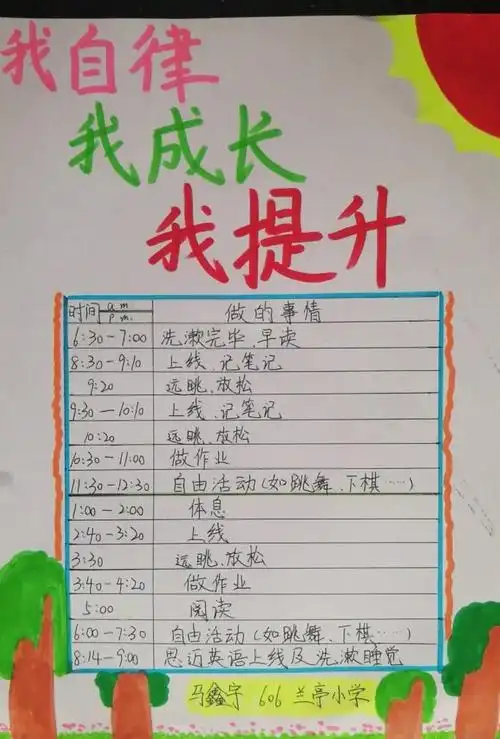 我自律
我成长
我提升
时间 a m / p m. 做的事情
6:30-7:00 洗漱完毕、早读
8:30-9:10 上线、记笔记
9:20 远眺、放松
9:30-10:10 上线、记笔记
10:20 远眺、放松
10:30-11:00 做作业
11:30-12:30 自由活动(如跳舞、下棋……)
1:00-2:00 体息
2:40-3:20 上线
3:30 远眺、放松
3:40-4:20 做作业
5:00 阅读
6:00-7:30 自由活动(如跳舞、下棋……)
8:14-9:00 思迈英语上线及洗漱睡觉
马鑫宇 606 兰亭小学